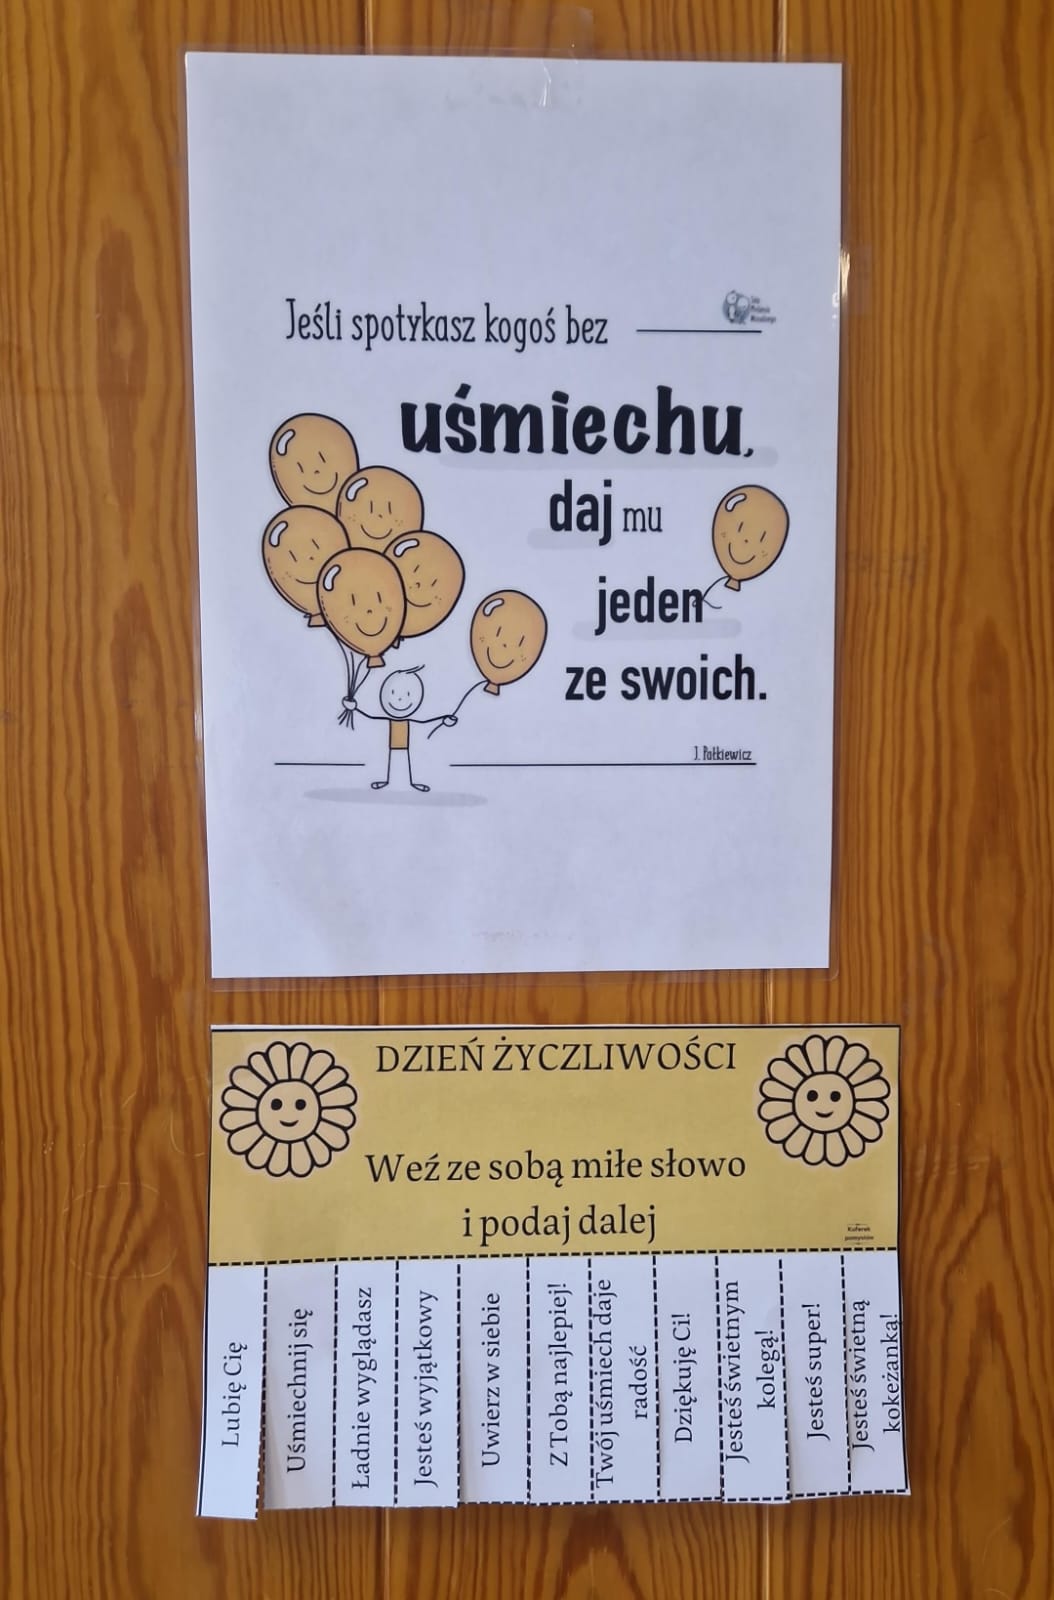 Jeśli spotykasz kogoś bez
uśmiechu,
daj mu
jeden
ze swoich.
J. Pałkiewicz
DZIEŃ ŻYCZLIWOŚCI
Weź ze sobą miłe słowo
i podaj dalej
Kuferek
pomysłów
Lubię Cię
Uśmiechnij się
Ładnie wyglądasz
Jesteś wyjątkowy
Uwierz w siebie
Z Tobą najlepiej!
Twój uśmiech daje
radość
Dziękuję Ci!
Jesteś świetnym
kolegą!
Jesteś super!
Jesteś świetną
kokeżanką!